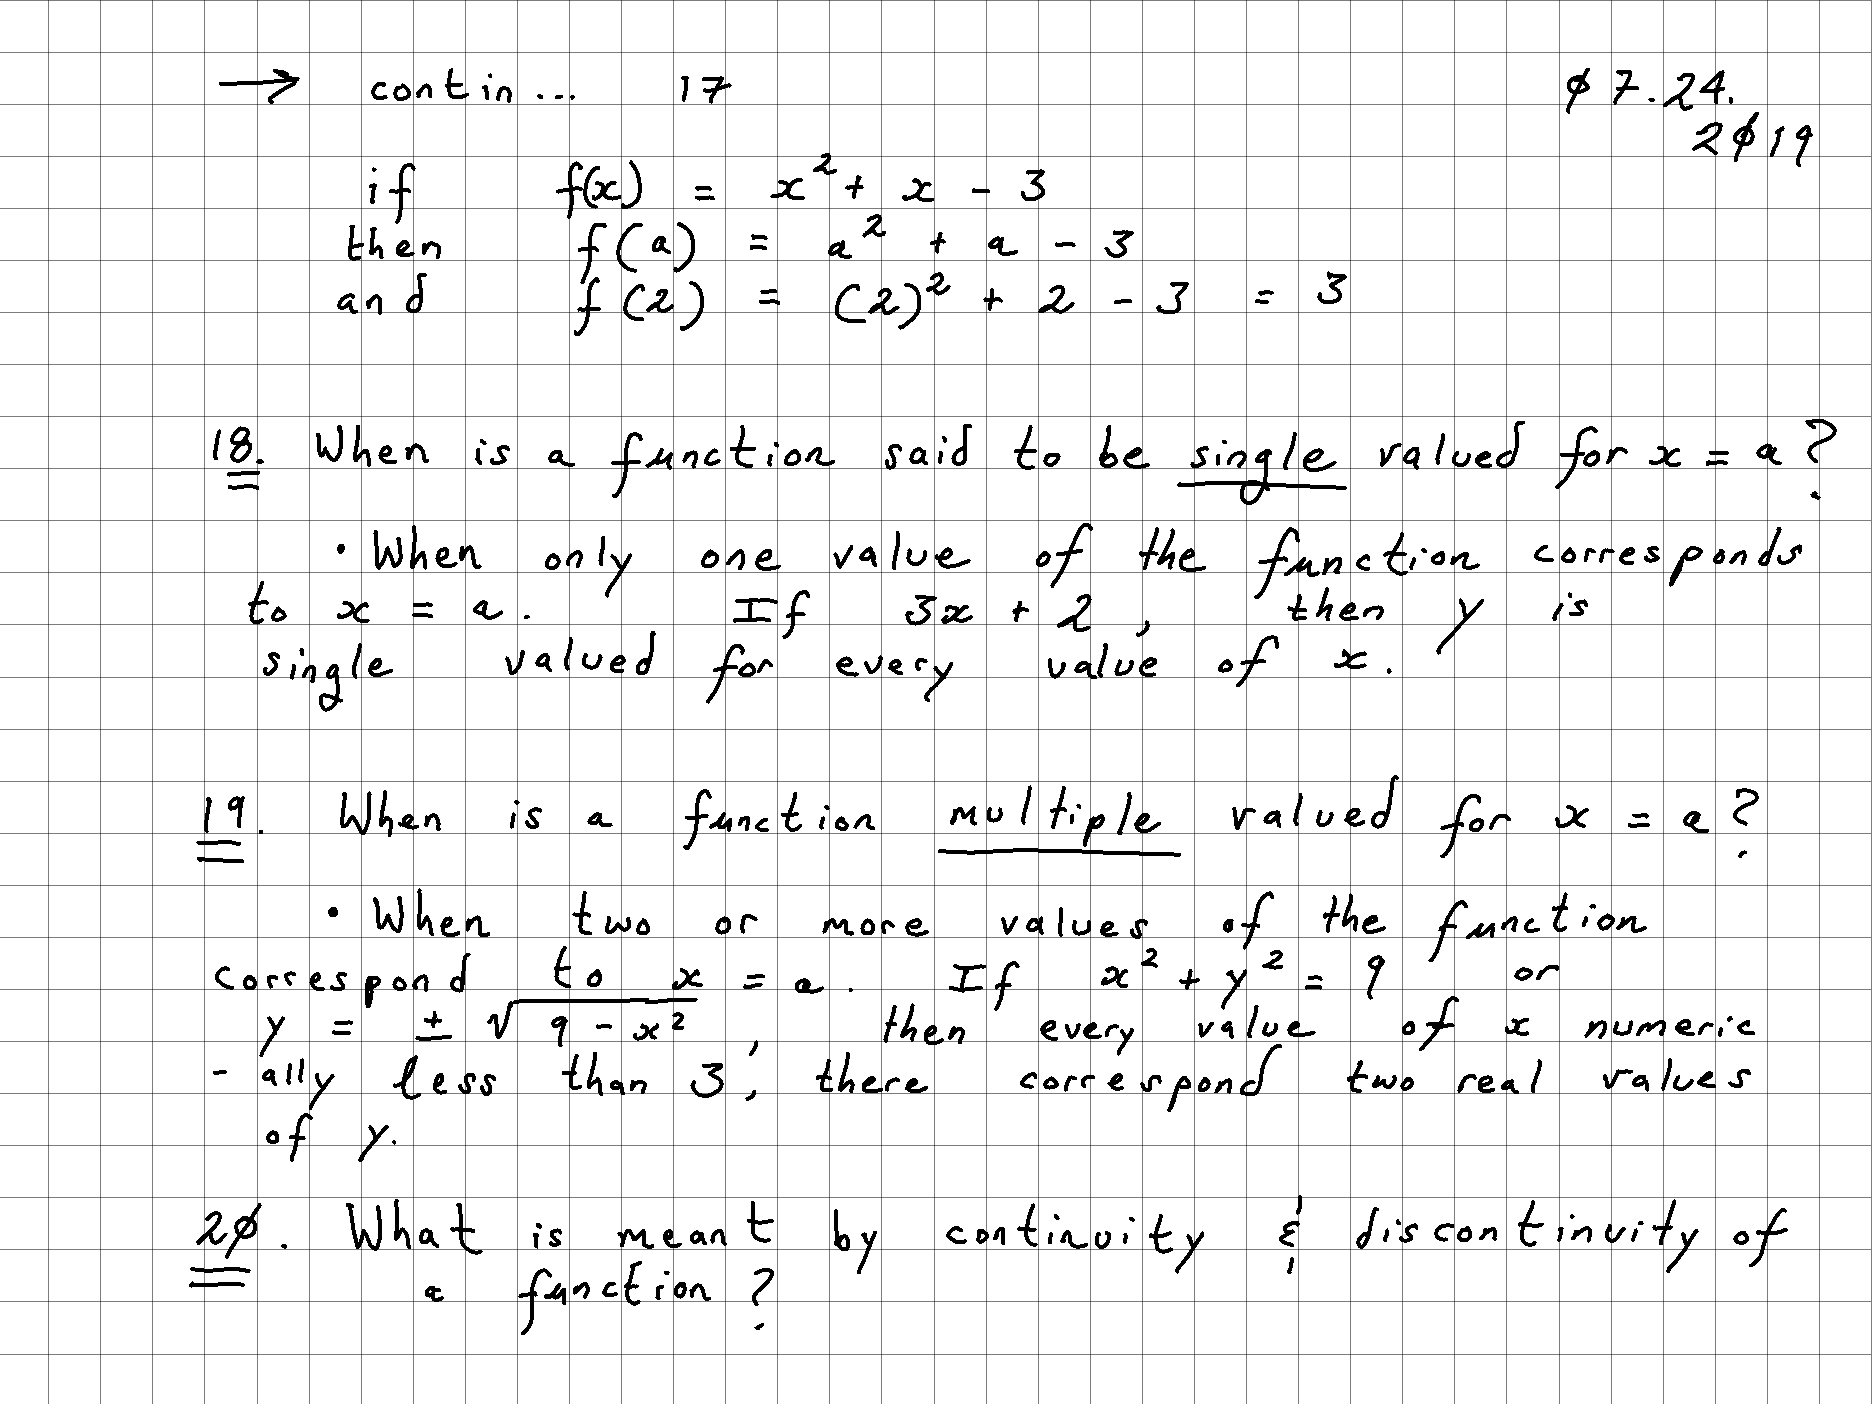 → contin... 17 ϕ7.24.
2ϕ19
if f(x) = x² + x - 3
then f(a) = a² + a - 3
and f(2) = (2)² + 2 - 3 = 3
18. When is a function said to be single valued for x = a?
• When only one value of the function corresponds
to x = a. If 3x + 2, then y is
single valued for every value of x.
19. When is a function multiple valued for x = a?
• When two or more values of the function
correspond to x = a. If x² + y² = 9 or
y = ± √9 - x², then every value of x numeric
- ally less than 3, there correspond two real values
of y.
2ϕ. What is meant by continuity & discontinuity of
a function?